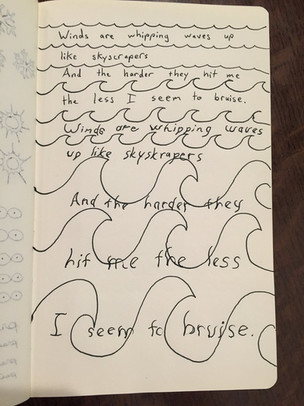 Winds are whipping waves up
like skyscrapers
And the harder they hit me
the less I seem to bruise.
Winds are whipping waves
up like skyskrapers
And the harder they
hit me the less
I seem to bruise.